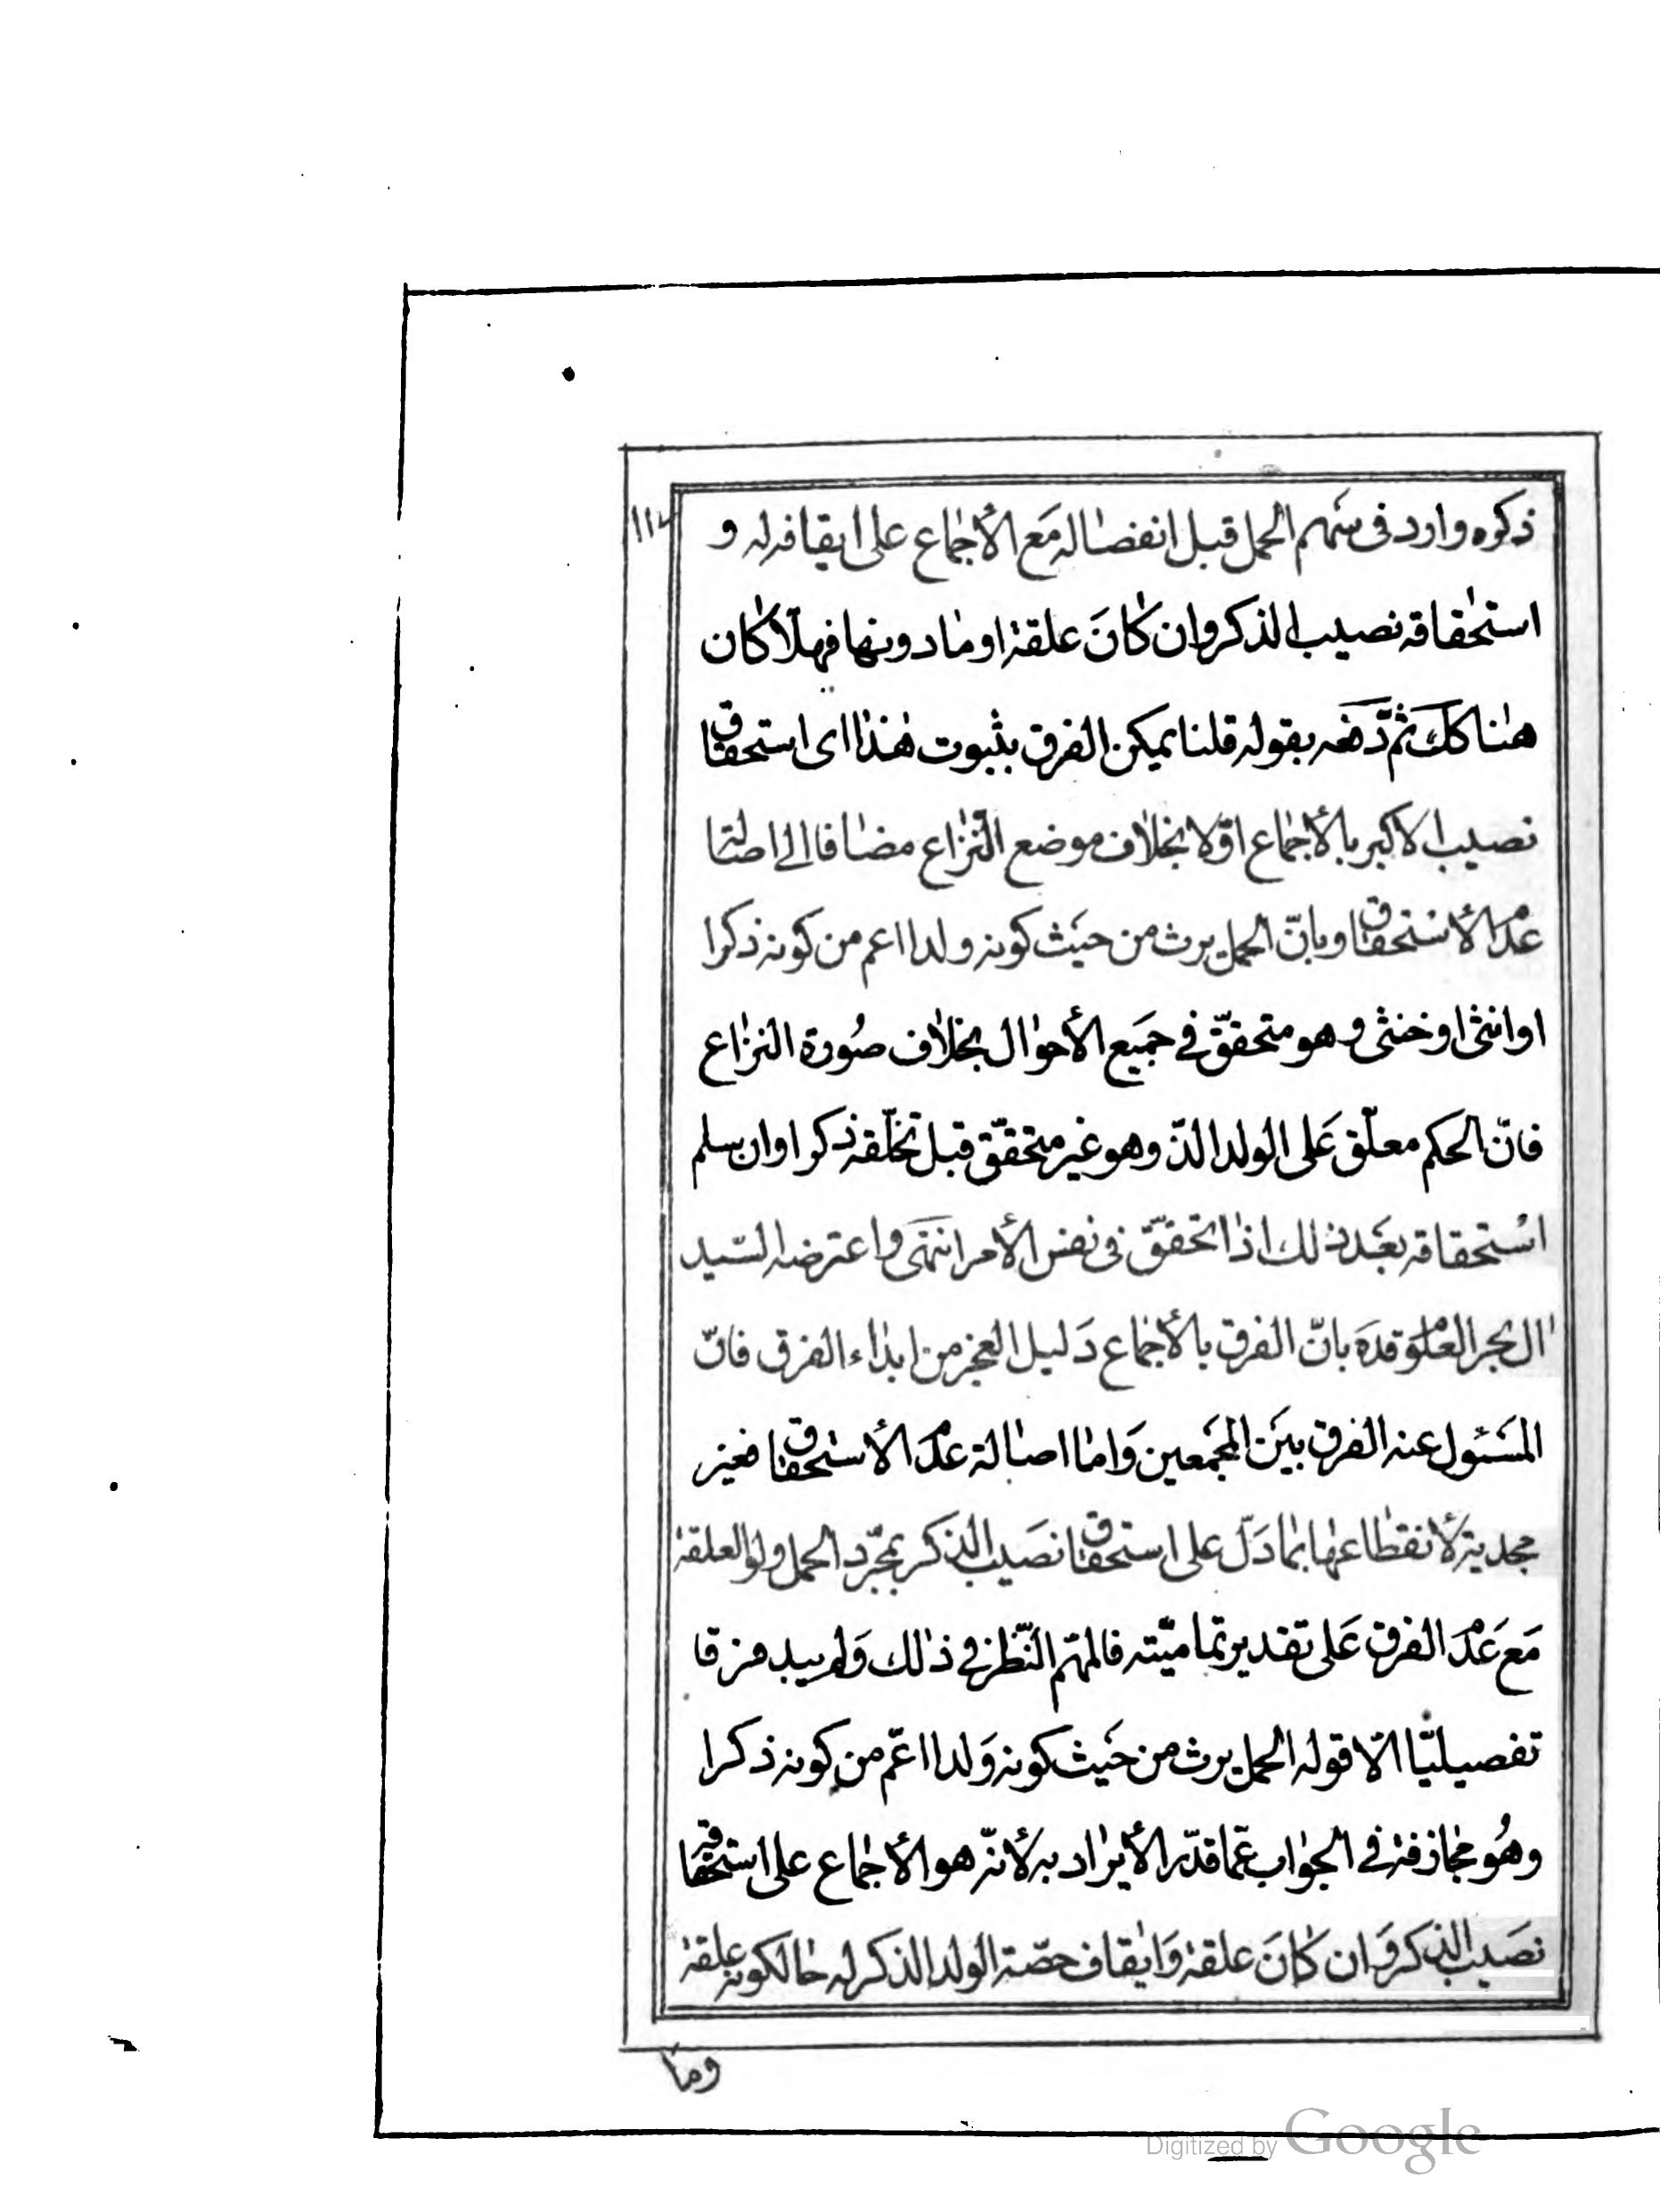 ١١٢
ذكره وارد فى سَهم الحمل قبل انفصاله مَع الأجماع على ايقافه له و
استحقاقه نصيب الذكر وان كانَ علقة او ما دونها فهلّا كان
هٰنا كك ثمّ دَفعه بقوله قلنا يمكن الفرق بثبوت هٰذا اى استحقاق
نصيب الاكبر بالأجماع اوّلا بخلاف موضع النّزاع مضافا الى اصالتا
عدم الأستحقاق وبانّ الحمل يرث من حيَث كونه ولدا اعم من كونه ذكرا
او انثى او خنثى وهو متحقّق فى جَميع الأحوال بخلاف صُورة النزاع
فانّ الحكم معلّق عَلى الولد الذّ وهو غير متحقّق قبل تخلّقه ذكرا وان سلم
استحقاقه بعَد ذلك اذا تحقّق فى نفس الأمر انتهَى واعترضه السّيد
ال بحر العلوم قدَه بانّ الفرق بالأجماع دَليل العجز من ابداء الفرق فانّ
المسَئول عنه الفرق بيَن المجمَعين وَاما اصالة عدَم الأستحقاق فغير
مجدية لأنقطاعها بما دَلّ على استحقاق نصَيب الذكر بمجرّد الحمل ولو العلقة
مَع عَدم الفرق عَلى تقدير تماميّته فالمهّم النّظر فى ذلك وَلم يبد فرقا
تفصيليّا الّا قوله الحمل يرث من حَيث كونه وَلدا اعّم من كونه ذكرا
وهُو مجازفة فى الجواب عمّا قدّر الأيراد به لأنّه هو الأجماع على استحقاق
نصَيب الذكر وَان كانَ علقة وَايقاف حصّة الولد الذكر له حالكونه علقة
وما
Digitized by Google